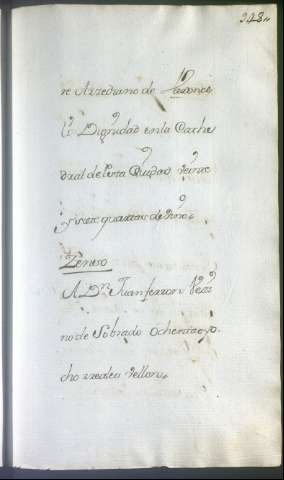 328
re Arzediano de
li Dignidad en la Cathe
dral de esta Ciudad veinte
y siete quartas de vino.
Zenso
A Dn. Juan ferron Vezi
no de Sobrado Ochenta y o
cho rreales vellon.